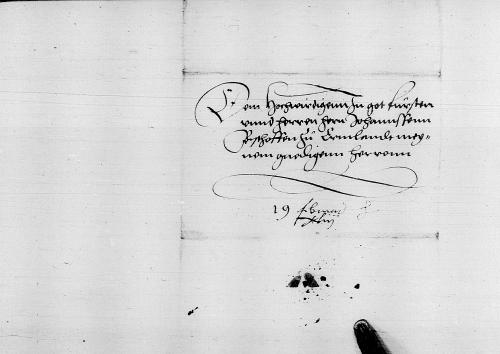 Dem Hochwirdigenn In got fursten
vnnd herren hern Johannsenn
Bischoffen zu Ermlandt mey=
nem gnedigenn herrenn
19 februarii